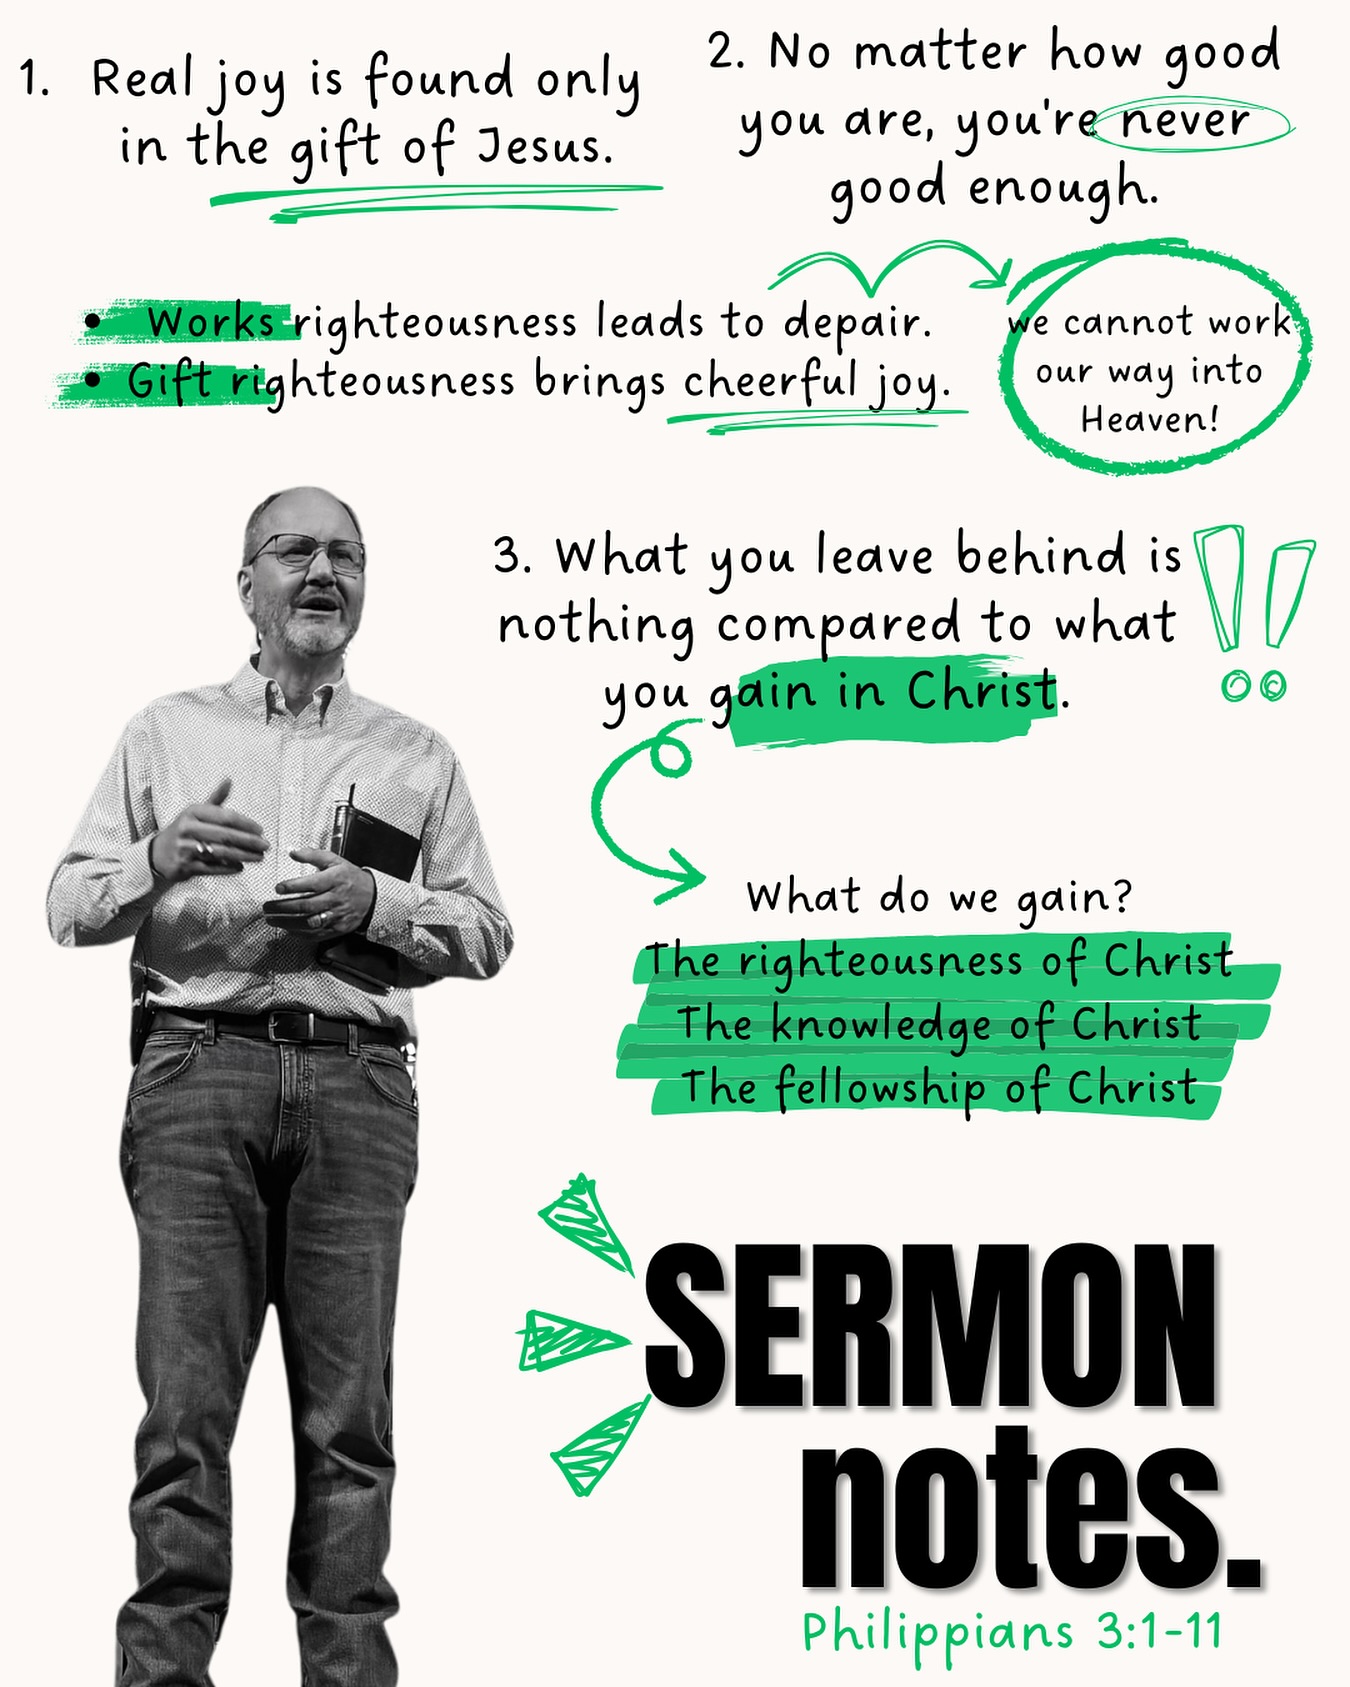 1. Real joy is found only
in the gift of Jesus.
2. No matter how good
you are, you're never
good enough.
• Works righteousness leads to depair.
• Gift righteousness brings cheerful joy.
we cannot work
our way into
Heaven!
3. What you leave behind is
nothing compared to what
you gain in Christ.
!!
What do we gain?
The righteousness of Christ
The knowledge of Christ
The fellowship of Christ
SERMON
notes.
Philippians 3:1-11